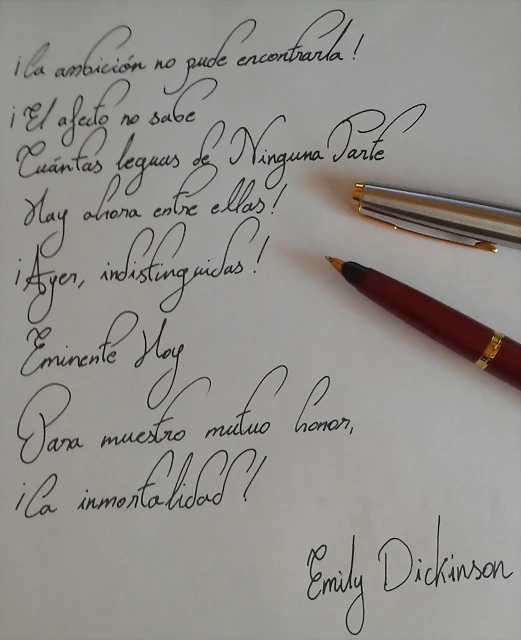 ¡La ambición no pude encontrarla!
¡El afecto no sabe
Cuántas leguas de Ninguna Parte
Hay ahora entre ellas!
¡Ayer, indistinguidas!
Eminente Hoy
Para muestro mutuo honor,
¡La inmortalidad!
Emily Dickinson